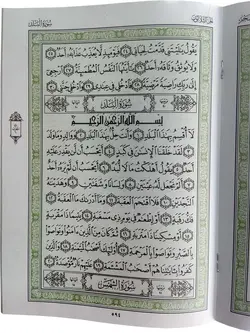 الجزء الثلاثون
سُورَةُ البَلَدِ
يَقُولُ يَٰلَيْتَنِي قَدَّمْتُ لِحَيَاتِي ٢٤ فَيَوْمَئِذٍ لَّا يُعَذِّبُ عَذَابَهُۥٓ أَحَدٌ ٢٥
وَلَا يُوثِقُ وَثَاقَهُۥٓ أَحَدٌ ٢٦ يَٰٓأَيَّتُهَا ٱلنَّفْسُ ٱلْمُطْمَئِنَّةُ ٢٧ ٱرْجِعِيٓ
إِلَىٰ رَبِّكِ رَاضِيَةً مَّرْضِيَّةً ٢٨ فَٱدْخُلِي فِي عِبَٰدِي ٢٩ وَٱدْخُلِي جَنَّتِي ٣٠
سُورَةُ البَلَدِ
بِسْمِ ٱللَّهِ ٱلرَّحْمَٰنِ ٱلرَّحِيمِ
لَآ أُقْسِمُ بِهَٰذَا ٱلْبَلَدِ ١ وَأَنتَ حِلٌّۢ بِهَٰذَا ٱلْبَلَدِ ٢ وَوَالِدٍ وَمَا وَلَدَ
٣ لَقَدْ خَلَقْنَا ٱلْإِنسَٰنَ فِي كَبَدٍ ٤ أَيَحْسَبُ أَن لَّن يَقْدِرَ عَلَيْهِ
أَحَدٌ ٥ يَقُولُ أَهْلَكْتُ مَالًا لُّبَدًا ٦ أَيَحْسَبُ أَن لَّمْ يَرَهُۥٓ أَحَدٌ
٧ أَلَمْ نَجْعَل لَّهُۥ عَيْنَيْنِ ٨ وَلِسَانًا وَشَفَتَيْنِ ٩ وَهَدَيْنَٰهُ ٱلنَّجْدَيْنِ
١٠ فَلَا ٱقْتَحَمَ ٱلْعَقَبَةَ ١١ وَمَآ أَدْرَىٰكَ مَا ٱلْعَقَبَةُ ١٢ فَكُّ رَقَبَةٍ
١٣ أَوْ إِطْعَٰمٌ فِي يَوْمٍ ذِي مَسْغَبَةٍ ١٤ يَتِيمًا ذَا مَقْرَبَةٍ ١٥
أَوْ مِسْكِينًا ذَا مَتْرَبَةٍ ١٦ ثُمَّ كَانَ مِنَ ٱلَّذِينَ ءَامَنُوا۟ وَتَوَاصَوْا۟
بِٱلصَّبْرِ وَتَوَاصَوْا۟ بِٱلْمَرْحَمَةِ ١٧ أُو۟لَٰٓئِكَ أَصْحَٰبُ ٱلْمَيْمَنَةِ ١٨ وَٱلَّذِينَ
كَفَرُوا۟ بِـَٔايَٰتِنَا هُمْ أَصْحَٰبُ ٱلْمَشْـَٔمَةِ ١٩ عَلَيْهِمْ نَارٌ مُّؤْصَدَةٌۢ ٢٠
سُورَةُ الشَّمْسِ
٥٩٤